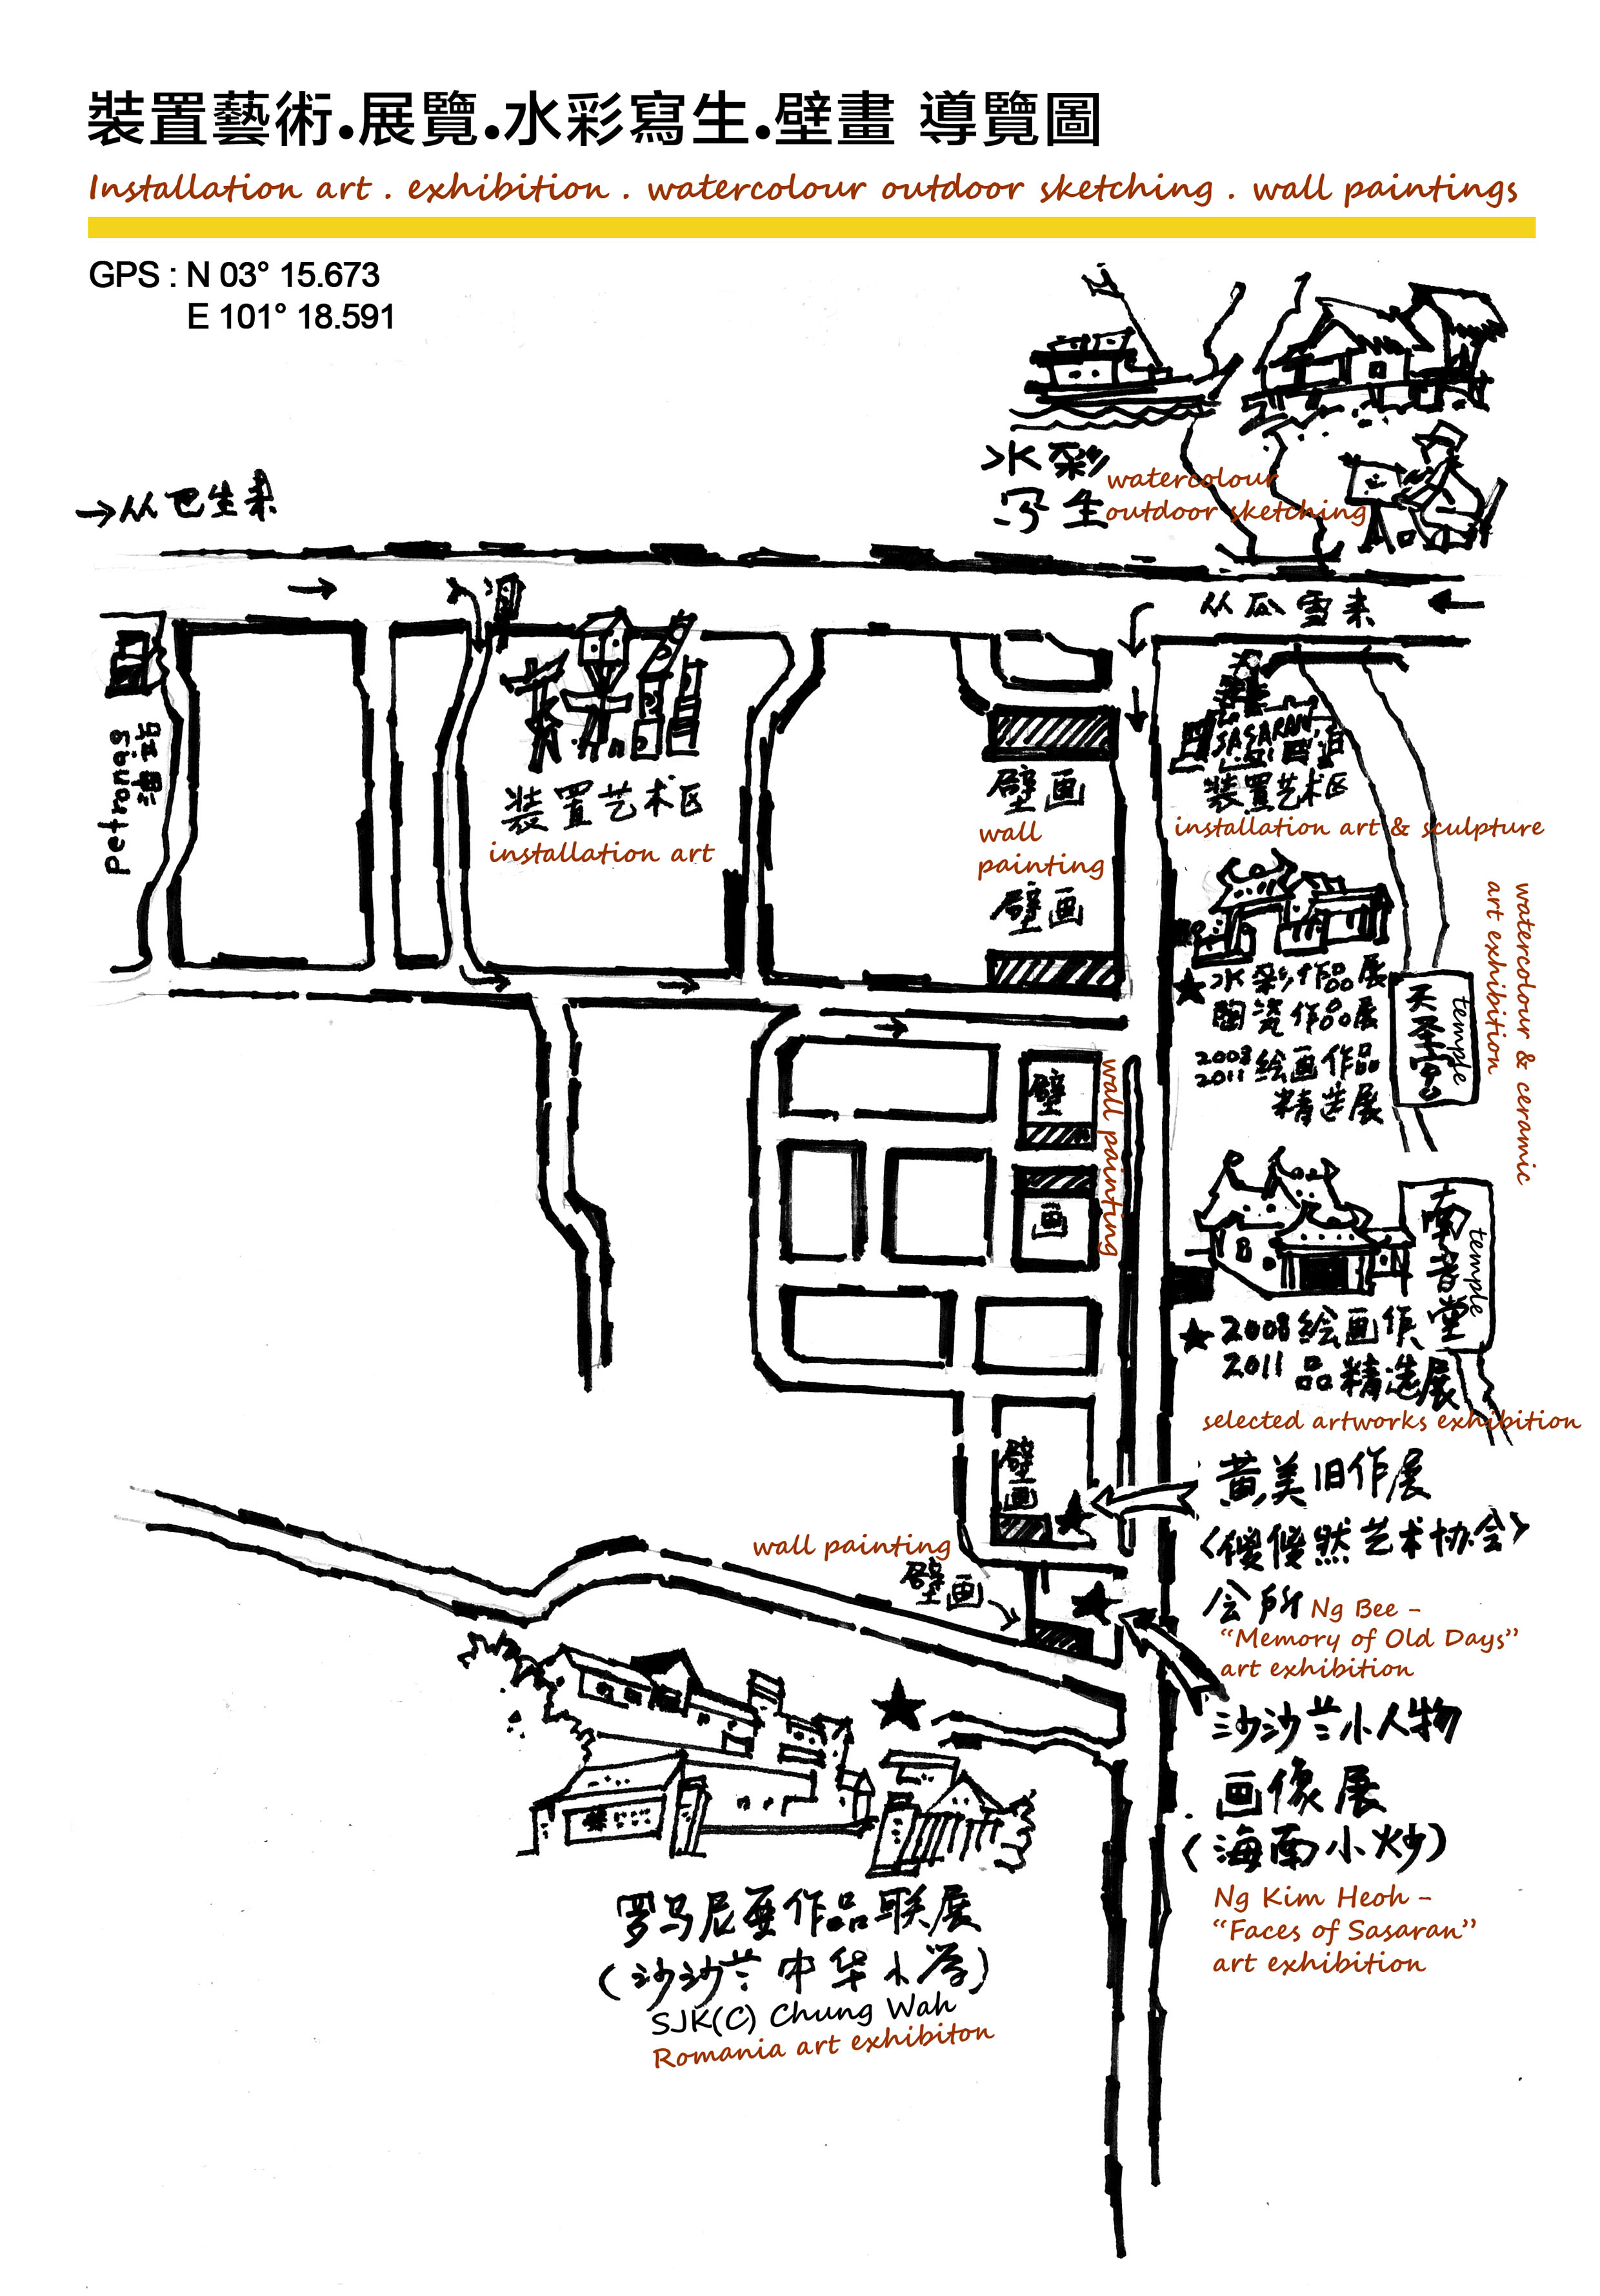 裝置藝術.展覽.水彩寫生.壁畫 導覽圖
Installation art . exhibition . watercolour outdoor sketching . wall paintings
GPS : N 03° 15.673
E 101° 18.591
水彩
写生
watercolour
outdoor sketching
→从巴生来
从瓜雪来
petronas
油站
装置艺术区
installation art
壁画
wall
painting
壁画
SASARAN
装置艺术区
installation art & sculpture
水彩作品展
陶瓷作品展
2008
2011 绘画作品
精选展
天圣宫
temple
watercolour & ceramic
art exhibition
壁
画
wall painting
temple
2008 绘画作
2011 品精选展
selected artworks exhibition
黄美旧作展
<傻傻然艺术协会>
会所 Ng Bee -
“Memory of Old Days”
art exhibition
壁画
wall painting
壁画
沙沙兰小人物
画像展
(海南小炒)
Ng Kim Heoh -
“Faces of Sasaran”
art exhibition
罗马尼亚作品联展
(沙沙兰中华小学)
SJK(C) Chung Wah
Romania art exhibiton